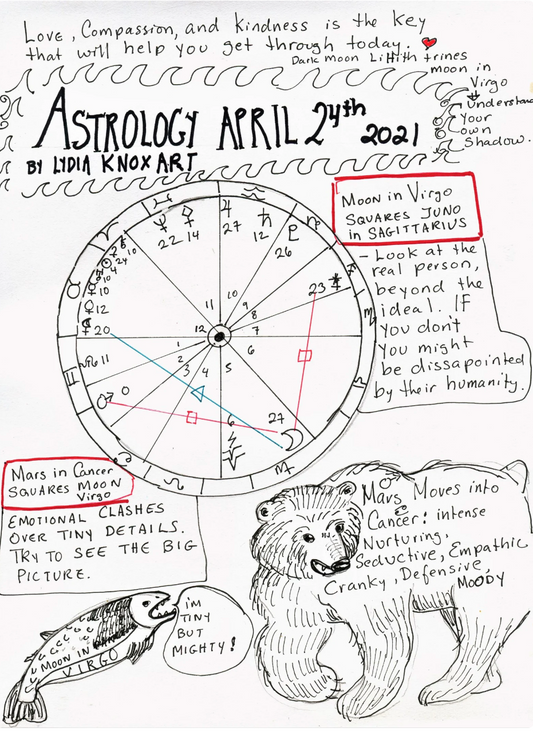 Love, Compassion, and Kindness is the key
that will help you get through today.
Dark Moon Lilith trines
moon in
Virgo
Understand
Your
Own
Shadow.
ASTROLOGY APRIL 24th 2021
BY LYDIA KNOX ART
Moon in Virgo
SQUARES JUNO
in SAGITTARIUS
- Look at the
real person,
beyond the
ideal. IF
you don't
You might
be dissapointed
by their humanity.
22 14 27 12 26
23
10
24
10
4
10
12
20
11
0
6
27
11 10 9 8 7
12
1 2 3 4 5 6
Mars in Cancer
SQUARES MOON
Virgo
EMOTIONAL CLASHES
OVER TINY DETAILS.
TRY TO SEE THE BIG
PICTURE.
Mars Moves into
Cancer: intense
Nurturing,
Seductive, Empathic
Cranky, Defensive,
MOODY
MOON IN
VIRGO
iM
TINY
BUT
MIGHTY!